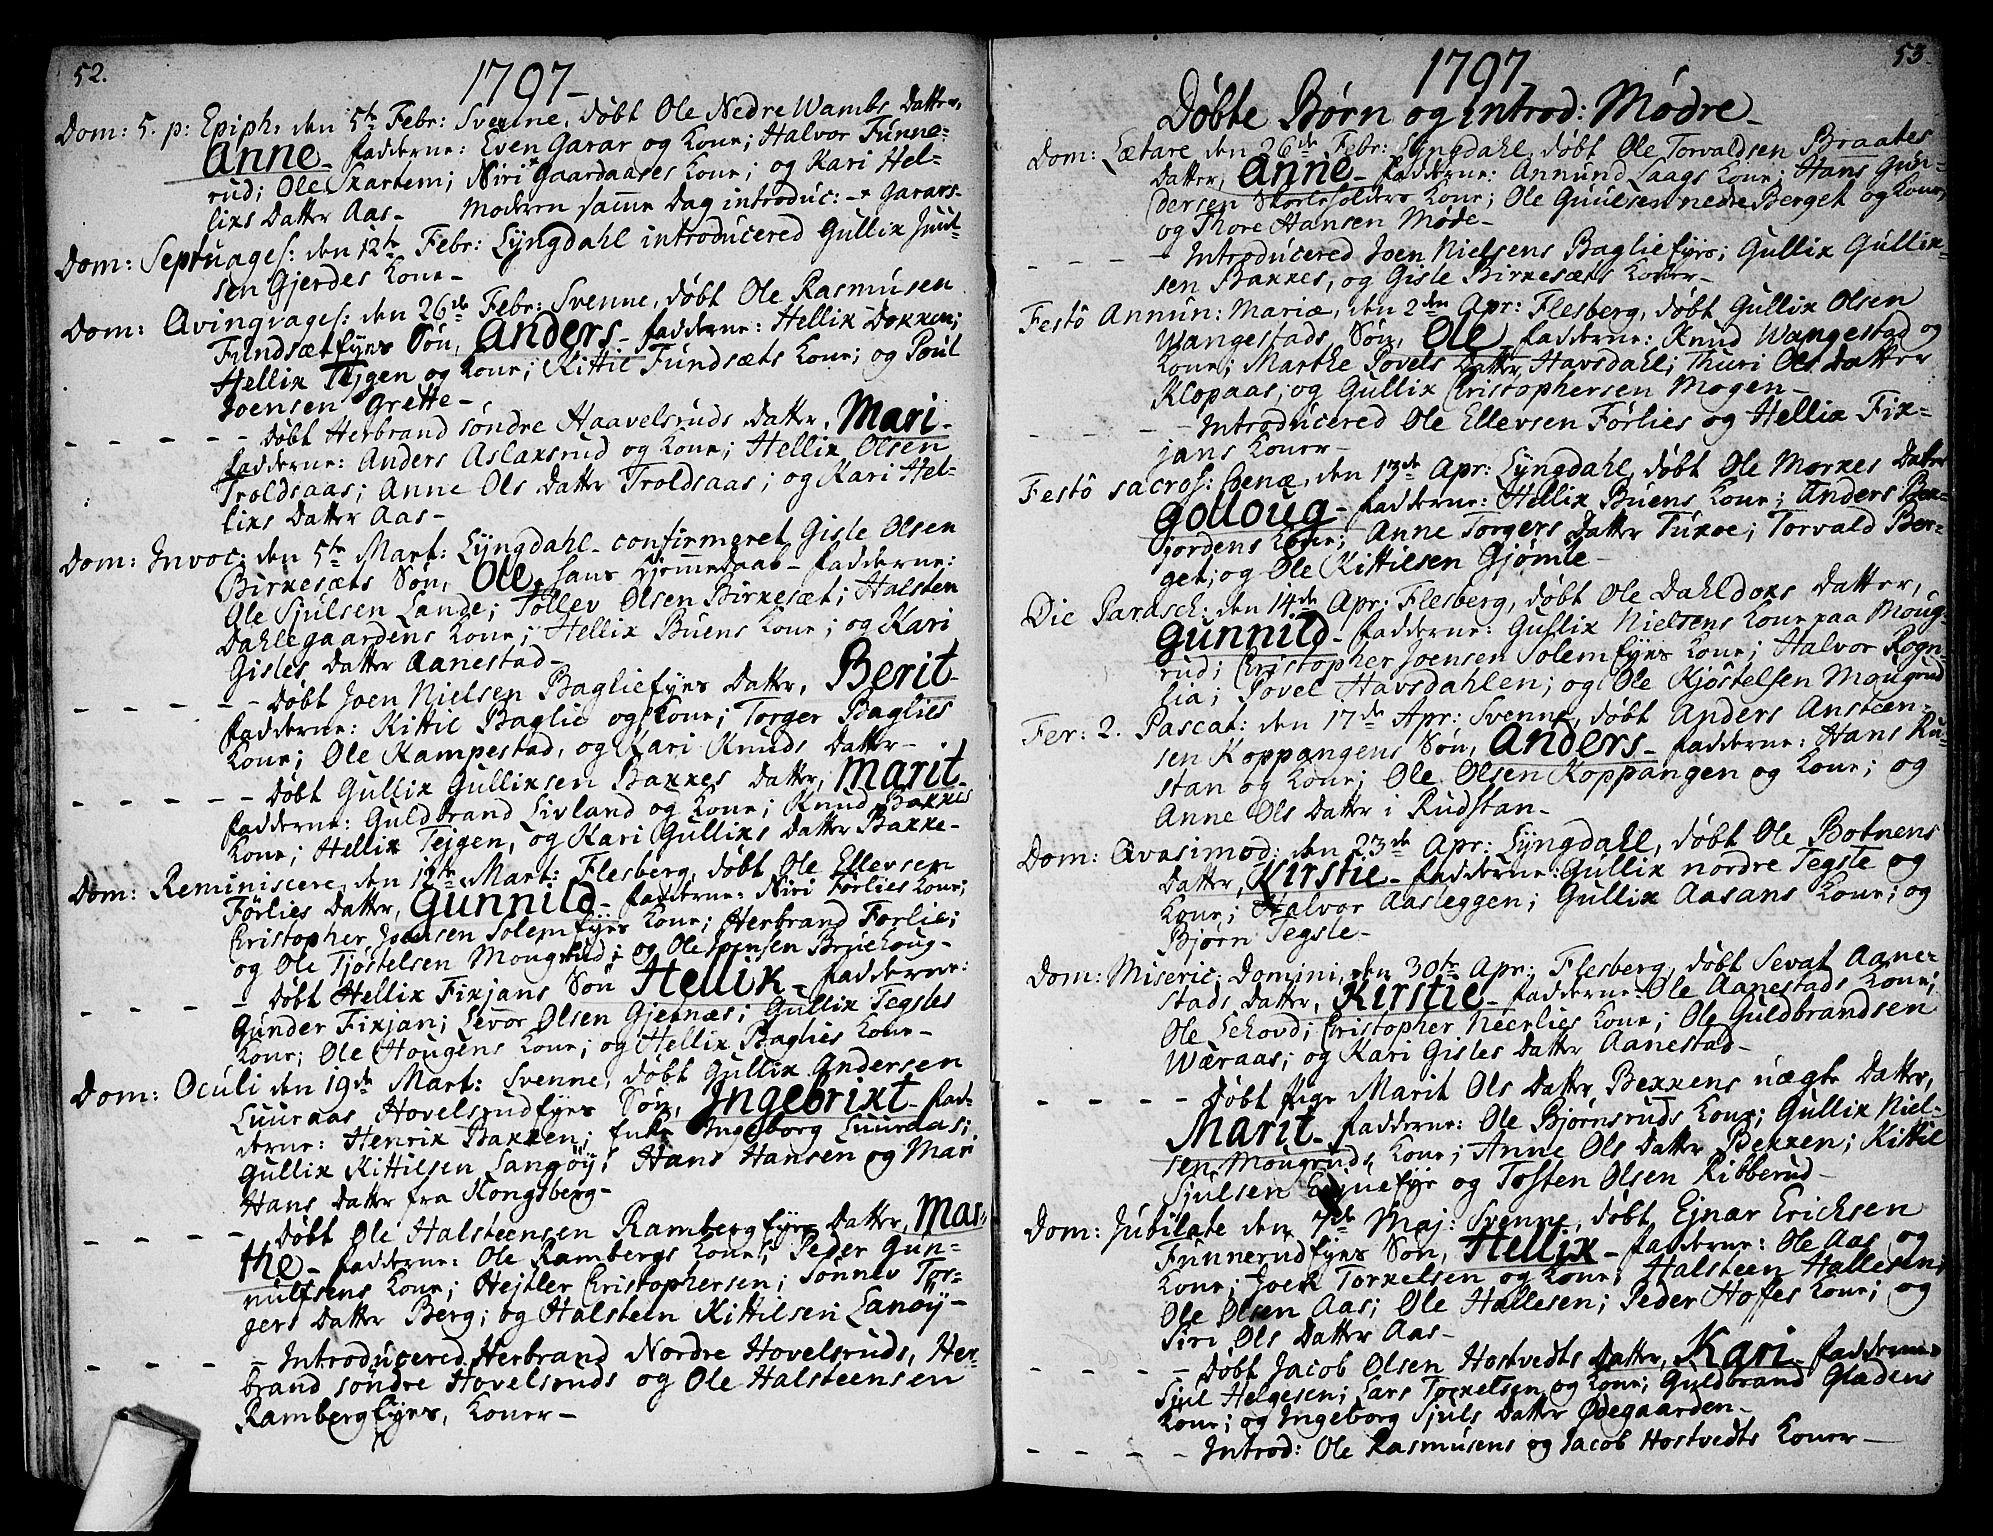 52.
1797-
Dom: 5. p: Epiph: den 5te Febr: Svenne, døbt Ole Nedre Wambs Datter,
Anne- Fadderne: Even Garar og Kone; Halvor Funne-
rud; Ole Skartem; Niri * Gaardaases Kone; og Kari Hel-
lixs Datter Aas- Moderen samme Dag introduc: - * Garars-
Dom: Septuages: den 12te Febr: Lÿngdahl introducered Gullix Juul-
sen Gjerdes Kone-
Dom: Qvinqvages: den 26de Febr: Svenne, døbt Ole Rasmusen
Fundsætejes Søn, Anders- Fadderne: Hellix Dokken;
Hellix Tejgen og Kone; Kittil Fundsæts Kone; og Poul
Joensen Grette-
- - - - - Døbt Herbrand søndre Haavelsruds Datter, Mari-
Fadderne: Anders Aslaxsrud og Kone; Hellix Olsen
Troldsaas; Anne Ols Datter Troldsaas; og Kari Hel-
lixs Datter Aas-
Dom: Invoc: den 5te Mart: Lÿngdahl- confirmeret Gisle Olsen
Birkesæts Søn, Ole, hans Hjemmedaab- Fadderne:
Ole Sjulsen Lande; Tollev Olsen Birkesæt; Halsten
Dahlegaardens Kone; Hellix Buens Kone; og Kari
Gisles Datter Aanestad-
- - - - - Døbt Joen Nielsen Bagliefyes Datter, Berit-
Fadderne: Kittil Baglie og Kone; Torger Baglies
Kone; Ole Kampestad, og Kari Knuds Datter-
- - - - - Døbt Gullix Gullixsen Bakkes Datter, Marit-
Fadderne: Guldbrand Livland og Kone; Knud Bakkes
Kone; Hellix Tejgen, og Kari Gullixs Datter Bakke-
Dom: Reminiscere, den 12te Mart: Flesberg, døbt Ole Ellevsen
Førlies Datter, Gunnild- Fadderne: Niri Førlies Kone;
Christopher Joensen Solemfyes Kone; Herbrand Førlie;
og Ole Tjøstelsen Mongrud; og Ole Joensen Bruehoug-
- - - - Døbt Hellix Fixjans Søn Hellix- Fadderne:
Gunder Fixjan; Levor Olsen Gjernæs; Gullix Tegsles
Kone; Ole Hougens Kone; og Hellix Baglies Kone-
Dom: Oculi den 19de Mart: Svenne, døbt Gullix Andersen
Luuraas Hovelsrudfyes Søn, Ingebrixt- Fad-
derne: Henrix Bakken; Enke Ingeborg Luuraas;
Gullix Kittilsen Langøÿ; Hans Hansen og Mari
Hans Datter fra Kongsberg-
- - - - - Døbt Ole Halsteensen Rambergfyes Datter, Mar-
the- Fadderne: Ole Rambergs Kone; Peder Gun-
nulfsens Kone; Hejtler Christophersen; Sønnev Tor-
gers Datter Berg; og Halsteen Kittilsen Lanøÿ-
- - - - - Introducered Herbrand Nordre Hovelsruds, Her-
brand søndre Hovelsruds og Ole Halsteensen
Rambergfyes, Koner-
53.
1797
Døbte Børn og introd: Mødre-
Dom: Lætare den 26de Febr: Lÿngdahl, døbt Ole Torvaldsen Braates
Datter, Anne- Fadderne: Annund Laags Kone; Hans Gun-
dersen Skorlesolders Kone; Ole Guulsen nedre Berget og Kone;
og Thore Hansen Møde-
- - - - Introducered Joen Nielsens Bagliefyes; Gullix Gullix-
sen Bakkes, og Gisle Birkesæts Koner-
Festô Annun: Mariæ, den 2den Apr: Flesberg, døbt Gullix Olsen
Wangestads Søn, Ole- Fadderne: Knud Wangestad og
Kone; Marthe Povels Datter Havsdahl; Thuri Ols Datter
Klopaas, og Gullix Christophersen Mogen-
- - - - Introducered Ole Ellevsen Førlies og Hellix Fix-
jans Koner-
Festô sacros: Coenæ, den 13de Apr: Lÿngdahl, døbt Ole Morkes Datter
Golloug- Fadderne: Hellix Buens Kone; Anders Bek-
jordens Kone; Anne Torgers Datter Tukoe; Torvald Ber-
get; og Ole Kittilsen Gjømle-
Die Parasch: den 14de Apr: Flesberg, døbt Ole Dahldoks Datter,
Gunnild- Fadderne: Gullix Nielsens Kone paa Moug-
rud; Christopher Joensen Solemfyes Kone; Halvor Rogn-
lia; Povel Havsdahlen; og Ole Kjøstelsen Mougrud
Fer: 2. Pascat: den 17de Apr: Svenne, døbt Anders Ansteen-
sen Koppangens Søn, Anders- Fadderne: Hans Ru-
stan og Kone; Ole Olsen Koppangen og Kone; og
Anne Ols Datter i Rudstan-
Dom: Qvasimod: den 23de Apr: Lÿngdahl, døbt Ole Botnens
Datter, Kirstie- Fadderne: Gullix nordre Tegsle og
Kone; Halvor Aasleggen; Gullix Aasans Kone; og
Bjørn Tegsle-
Dom: Miseric: Domini, den 30te Apr: Flesberg, døbt Sevat Aane-
stads Datter, Kirstie- Fadderne: Ole Aanestads Kone;
Ole Lehovd; Christopher Neerlies Kone; Ole Guldbrandsen
Wæraas; og Kari Gisles Datter Aanestad-
- - - - Døbt Pige Marit Ols Datter Bekkens uægte Datter,
Marit- Fadderne: Ole Bjørnsruds Kone; Gullix Niel-
sen Mougruds Kone; Anne Ols Datter Bekken; Kittil
Sjulsen Eijnefye og Tosten Olsen Ribberud-
Dom: Jubilate den 7de Maj: Svenne, døbt Ejnar Ericksen
Funnerudfyes Søn, Hellix- Fadderne: Ole Aas og
Kone; Joen Torkelsen og Kone; Halsteen Hallesen;
Ole Olsen Aas; Ole Hallesen; Peder Hoffes Kone; og
Siri Ols Datter Aas-
- - - - Døbt Jacob Olsen Hostvedts Datter, Kari- Fadderne
Sjul Helgesen; Lars Torkelsen og Kone; Guldbrand Glædens
Kone; og Ingeborg Sjuls Datter Ødegaarden-
- - - - Introd: Ole Rasmusens og Jacob Hostvedts Koner-